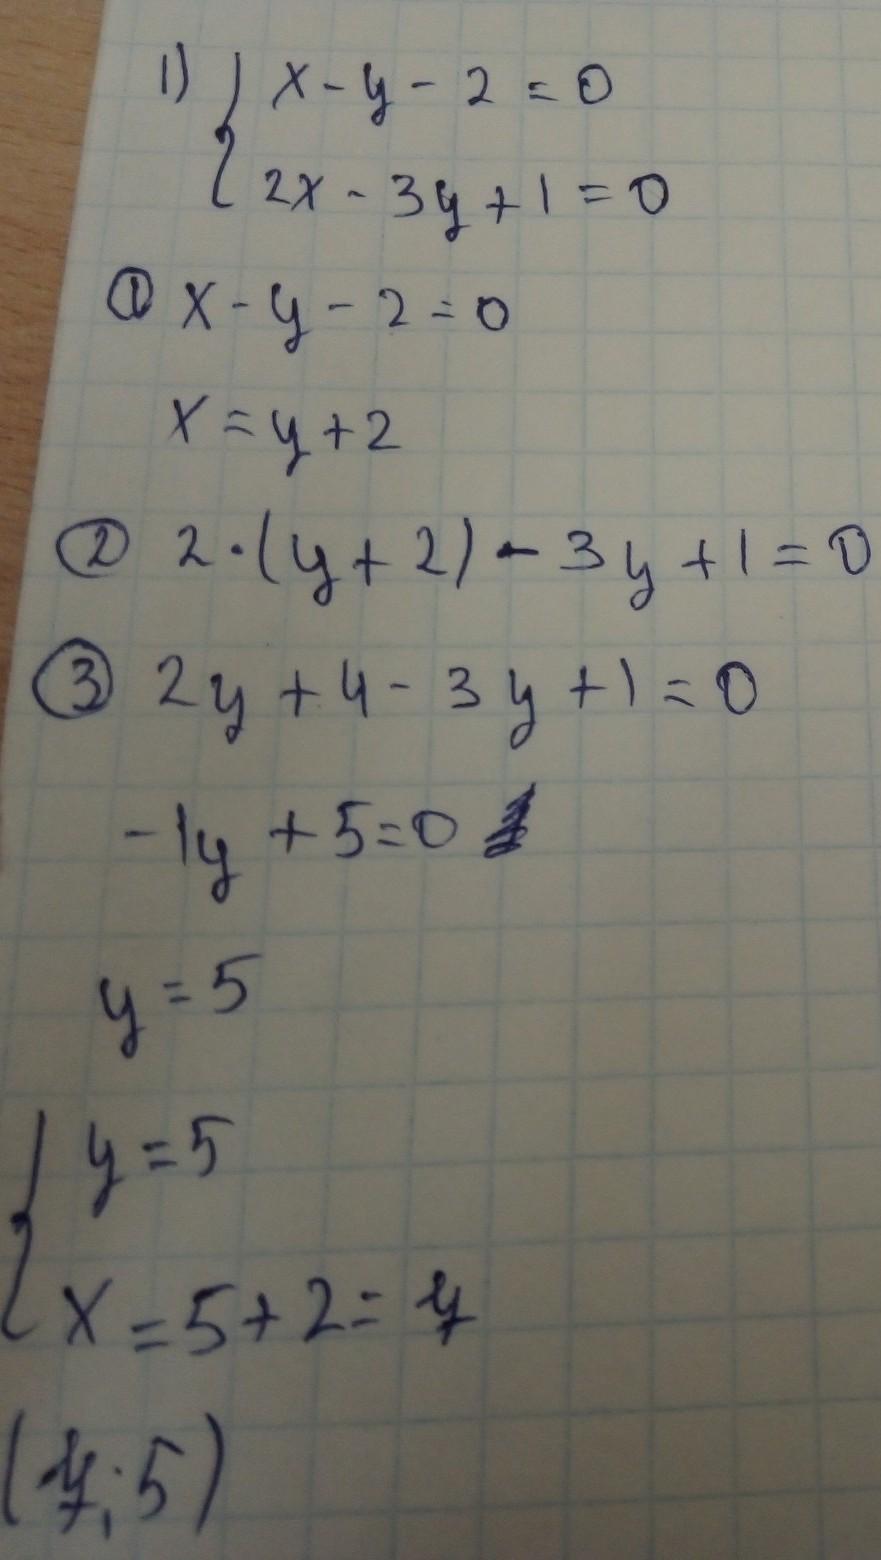 1) { x - y - 2 = 0
2x - 3y + 1 = 0
① x - y - 2 = 0
x = y + 2
② 2·(y + 2) - 3y + 1 = 0
③ 2y + 4 - 3y + 1 = 0
-1y + 5 = 0
y = 5
{ y = 5
x = 5 + 2 = 7
(7; 5)